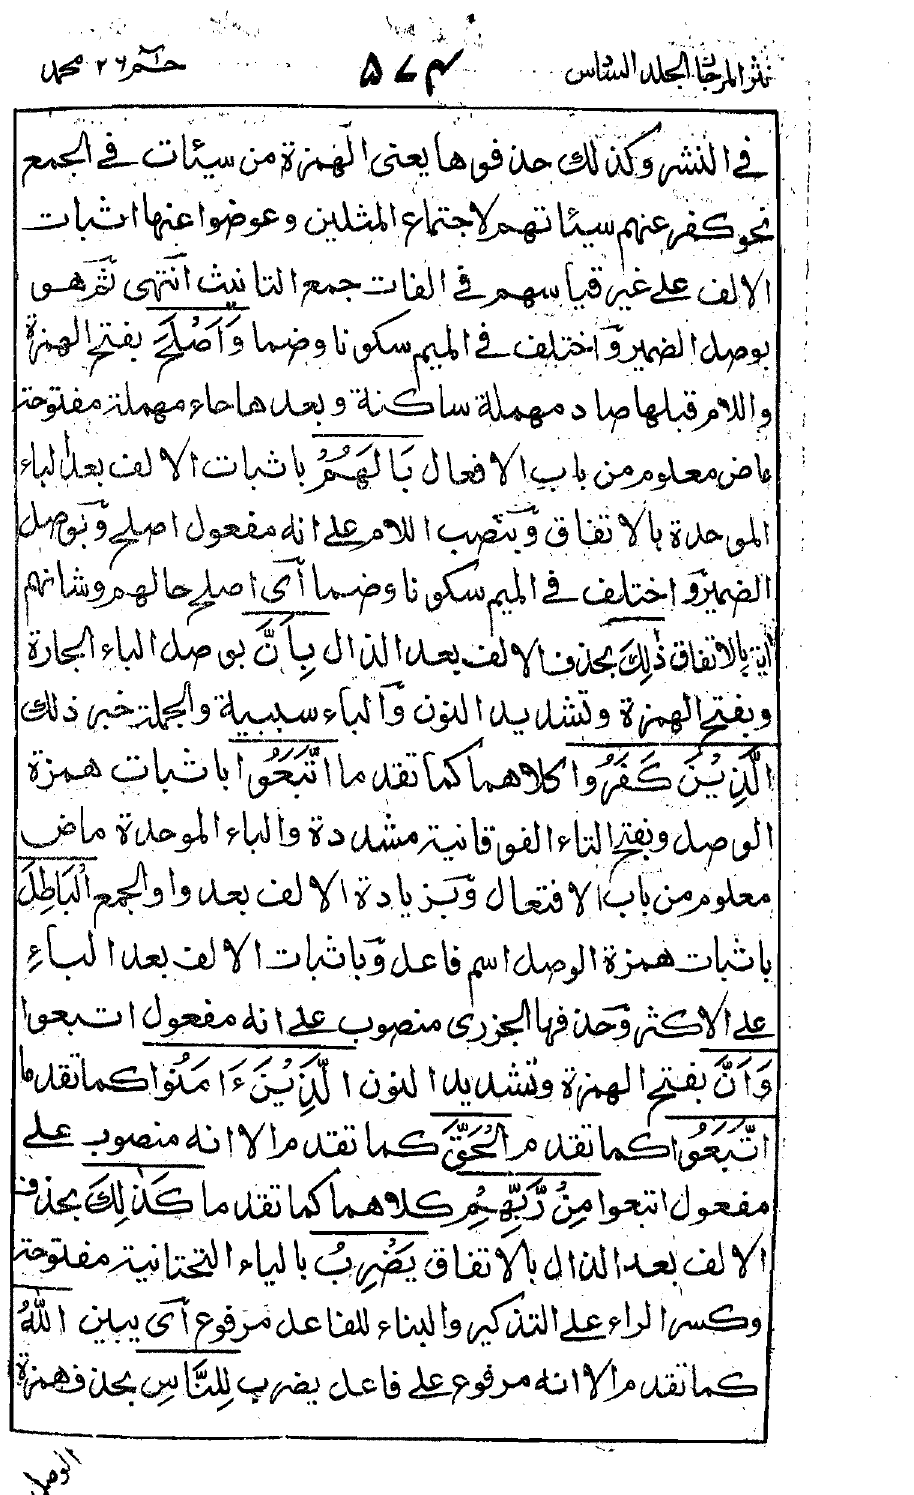 نثر المرجان الجلد السادس ٥٧٤ حٰم ٢٦ محمد
في النشر وكذلك حذفوها يعنى الهمزة من سيئات في الجمع
نحو كفر عنهم سيئاتهم لاجتماع المثلين وعوضوا عنها اثبات
الالف على غير قياسهم في الفات جمع التانيث انتهى ثم هو
بوصل الضمير وَاختلف في الميم سكونا وضما وَاَصْلَحَ بفتح الهمزة
واللام قبلها صاد مهملة ساكنة وبعدها حاء مهملة مفتوحة
ماض معلوم من باب الافعال بَالَهُمْ باثبات الالف بعد الباء
الموحدة بالاتفاق وَبنصب اللام على انه مفعول اصلح وَبوصل
الضمير وَاختلف في الميم سكونا وضما اَى اصلح حالهم وشانهم
اٰية بالاتفاق ذٰلِكَ بحذف الالف بعد الذال بِاَنَّ بوصل الباء الجارة
وبفتح الهمزة وتشديد النون وَالباء سببية والجملة خبر ذلك
الَّذِيْنَ كَفَرُوا كلاهما كما تقدما اتَّبَعُوا باثبات همزة
الوصل وبفتح التاء الفوقانية مشددة والباء الموحدة ماض
معلوم من باب الافتعال وَبزيادة الالف بعد واو الجمع الْبَاطِلَ
باثبات همزة الوصل اسم فاعل وَباثبات الالف بعد الباءِ
على الاكثر وَحذفها الجزرى منصوب على انه مفعول اتبعوا
وَاَنَّ بفتح الهمزة وتشديد النون الَّذِيْنَ ءَامَنُوْا كما تقدما
اتَّبَعُوا كما تقدم الْحَقَّ كما تقدم الا انه منصوب على
مفعول اتبعوا مِنْ رَّبِّهِمْ كلاهما كما تقدما كَذٰلِكَ بحذف
الالف بعد الذال بالاتفاق يَضْرِبُ بالياء التحتانية مفتوحة
وكسر الراء على التذكير والبناء للفاعل مرفوع اَى يبين اللّٰهُ
كما تقدم الا انه مرفوع على فاعل يضرب لِلنَّاسِ بحذف همزة
الوصل